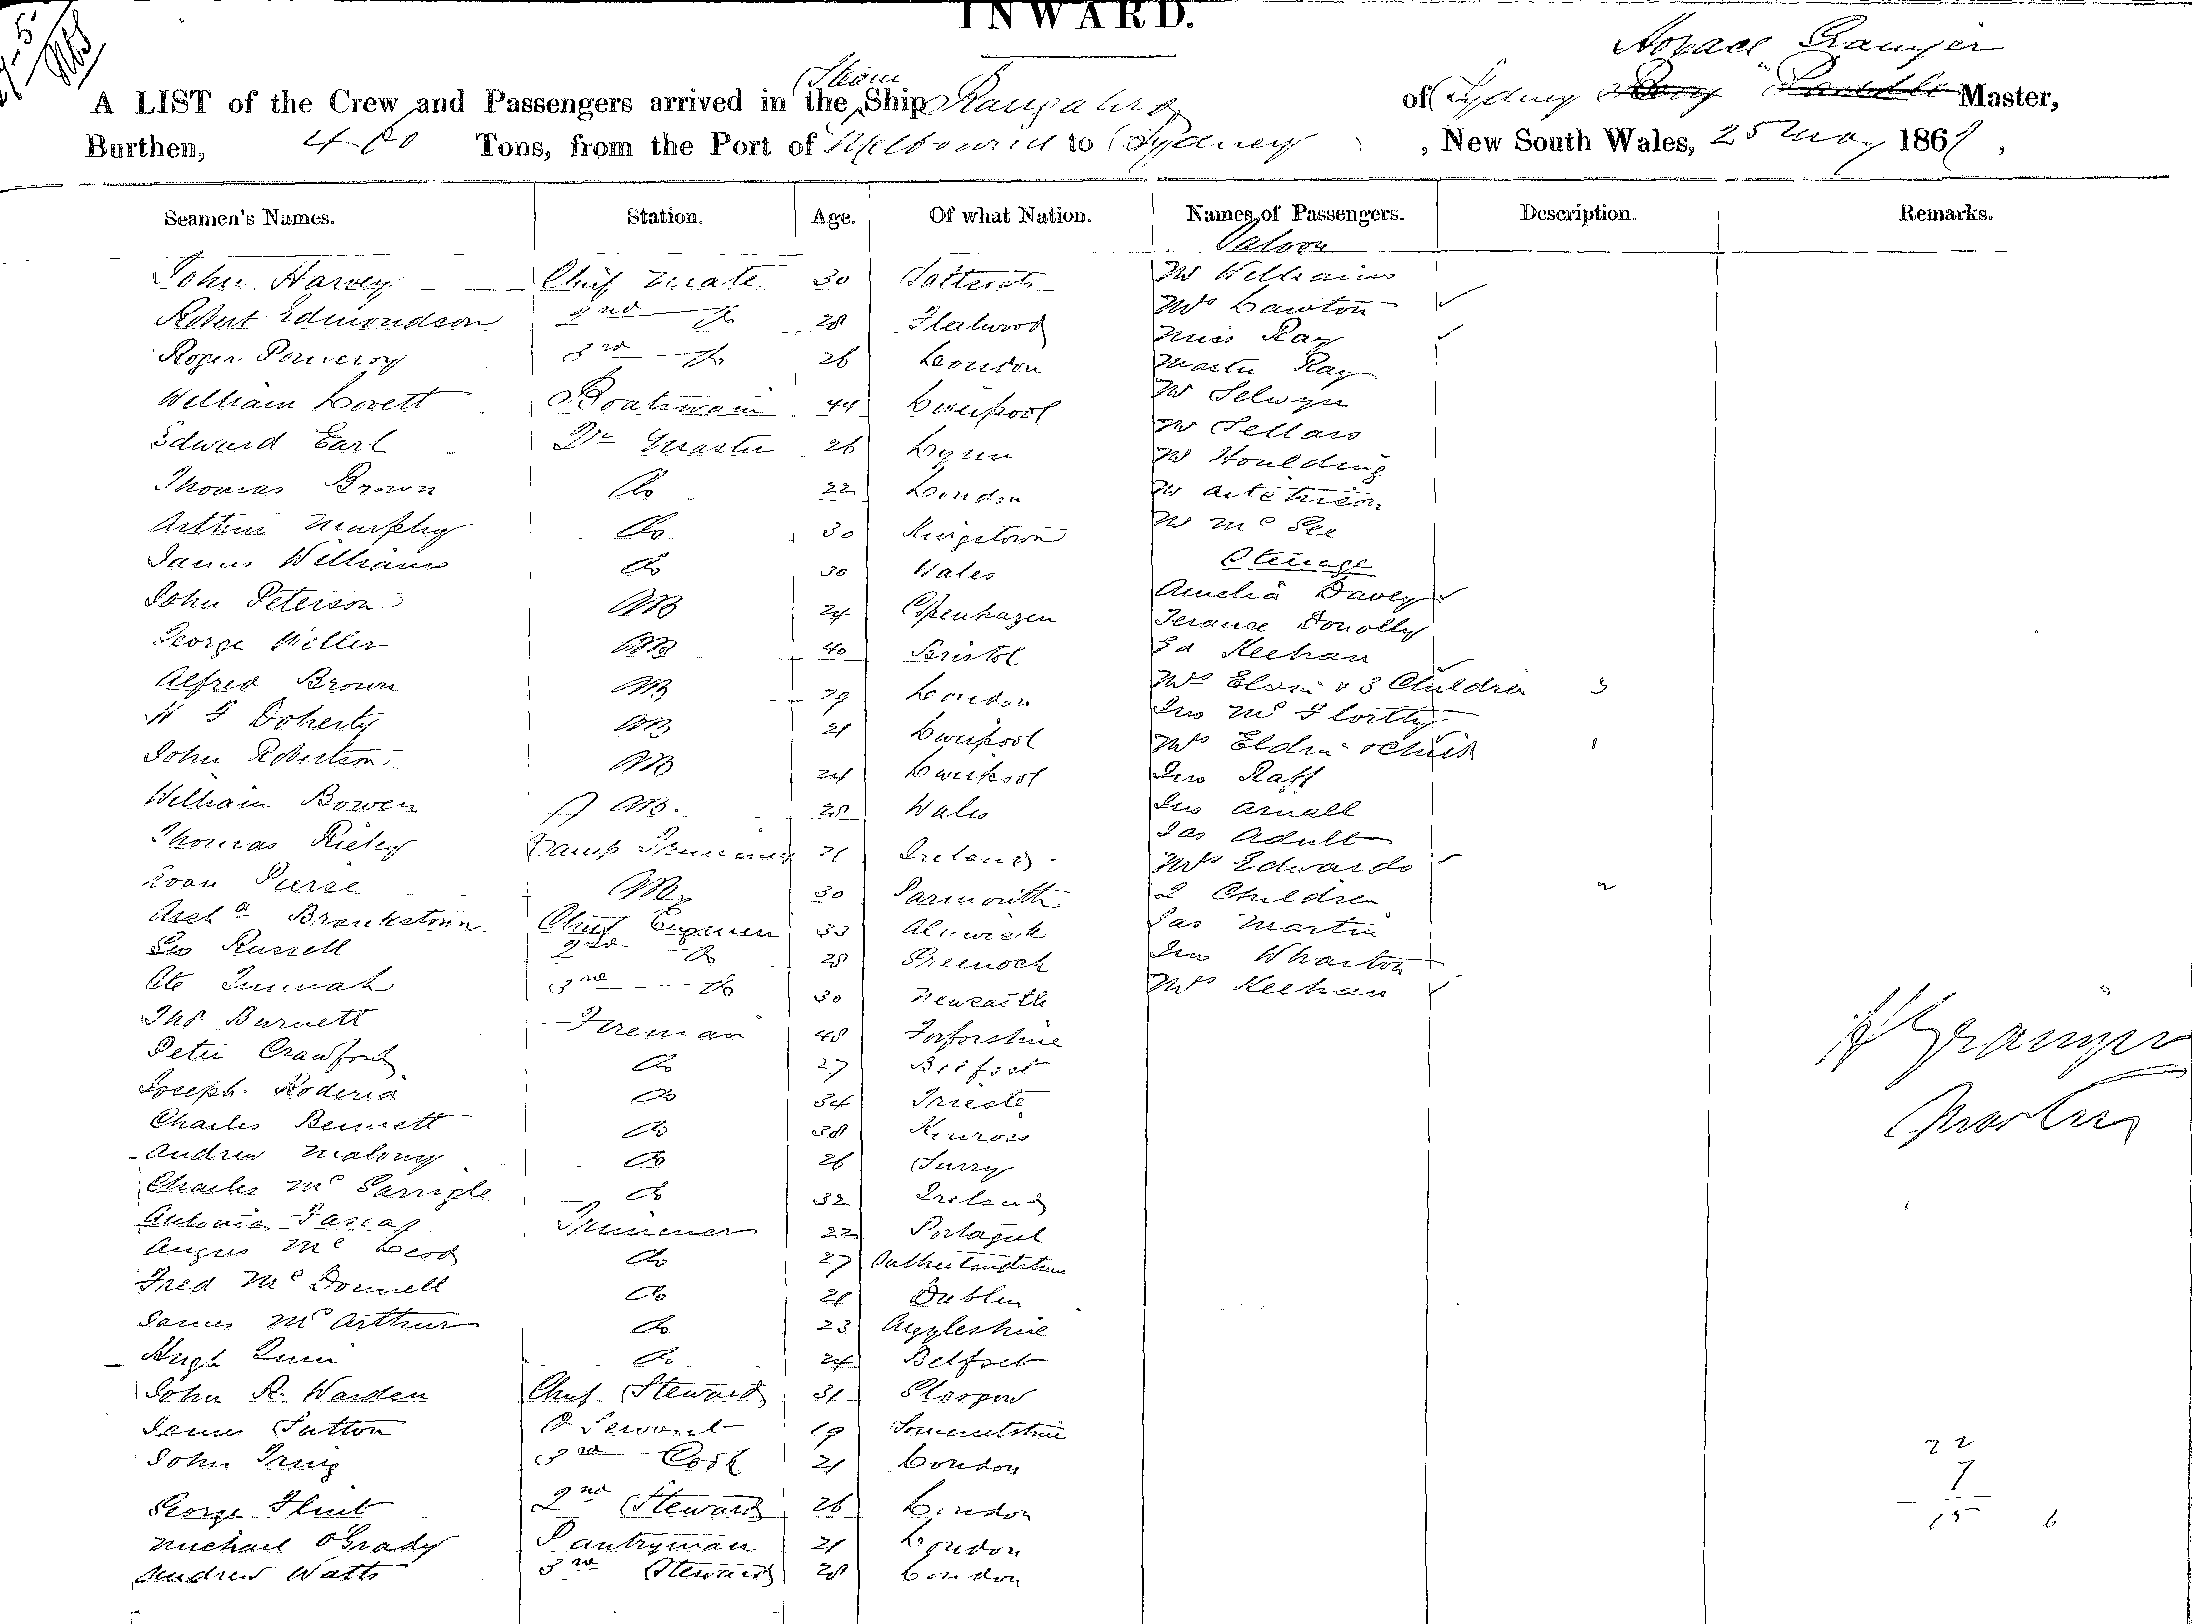 INWARD.
Horace Grainger
A LIST of the Crew and Passengers arrived in the Steam Ship of Sydney Master,
Burthen, Tons, from the Port of Melbourne to Sydney, New South Wales, 25 May 186
Seamen's Names. Station. Age. Of what Nation. Names of Passengers. Description. Remarks.
Saloon
John Harvey Chief Mate 30 Mr Williams
Robert Edmondson 2nd Do 28 Fleetwood Mrs Lawton
Roger Pomeroy 3rd Do 26 London Miss Ray
Master Ray
William Lovett Boatswain 44 Liverpool Mr Selwyn
Edward Earl Qr Master 26 Lynn Mr Sellars
Thomas Brown Do 22 London Mr Houlding
Mr
Arthur Murphy Do 30 Kingstown Mr Mc Gee
James Williams Do 30 Wales Steerage
John Peterson AB 24 Copenhagen Amelia Davey
George Miller AB 40 Bristol Terance Donolly
Ed Keehan
Alfred Brown AB 29 London Mrs & 3 Children 3
Doherty AB 21 Liverpool Jno
John Robertson AB 24 Liverpool Mrs 1
Jno
William Bowen AB. 28 Wales Jno Arnall
Thomas Rieley Lamp Trimmer 21 Ireland Jas Adult
Mrs Edwards
Evan Pierce 30 2 Children 2
Archd Brankston Chief Engineer 33 Alnwick Jas Martin
Geo Russell 2nd Do 28 Greenock Jno Wharton
3rd Do 30 Newcastle Mrs Keehan
Thos Burnett Fireman 48 Forforshire
H Grainger
Peter Crawford Do 27 Belfast
Joseph Do 34 Trieste
Master
Charles Bennett Do 38 Kinross
Andrew Malony Do 26 Surry
Charles Mc Garrigle Do 32 Ireland
Antonio Trimmer 22 Portagul
Angus Mc Leod Do 27
Fred Mc Donnell Do 21 Dublin
James Mc Arthur Do 23 Argyleshire
Hugh Quin Do 24 Belfast
John R. Warden Chief Steward 31 Glasgow
James Sutton Servant 19 Somersetshire
John Irwig 3rd Cook 21 London
22
7
George Flint 2nd Steward 26 London
15 6
Michael O'Grady Pantryman 21 London
Andrew Watts 3rd Steward 28 London